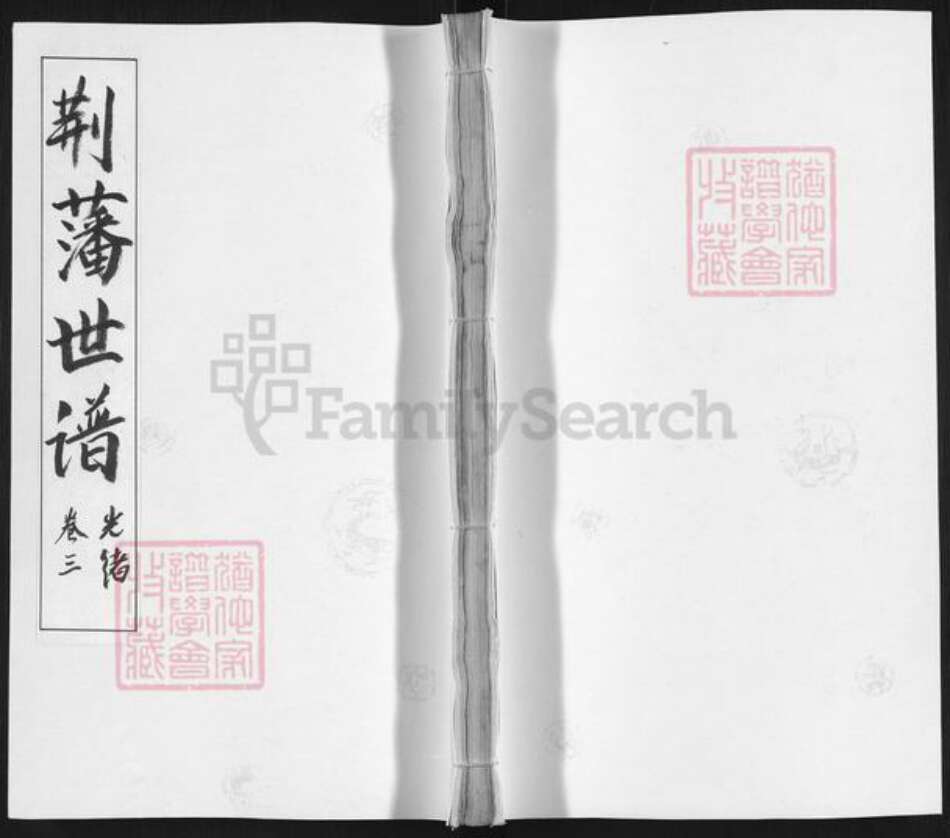 荆藩世谱
光绪
卷三
猶他家
譜學會
收藏
FamilySearch
猶他家
譜學會
收藏